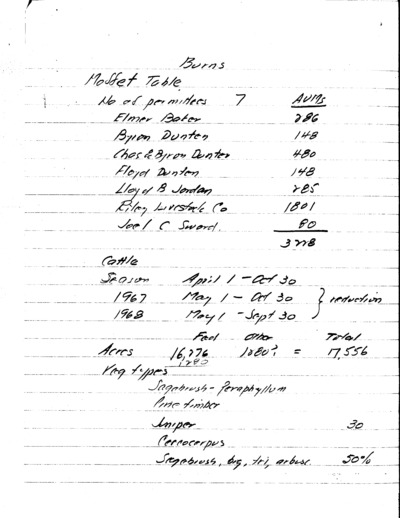 Burns
Moffet Table
No of permittees 7 AUMs
Elmer Baker 286
Byron Dunten 148
Chas & Byron Dunten 480
Floyd Dunten 148
Lloyd B Jordan 285
Riley Livestock Co 1801
Joel C Sword 80
3228
Cattle
Season April 1 - Oct 30
1967 May 1 - Oct 30 } reduction
1968 May 1 - Sept 30
Fed Other Total
Acres 16,276 1280? = 17,556
1280
Veg types
Sagebrush - Peraphyllum
Pine timber
Juniper 30
Cercocarpus
Sagebrush, big, tri, arbusc. 50%